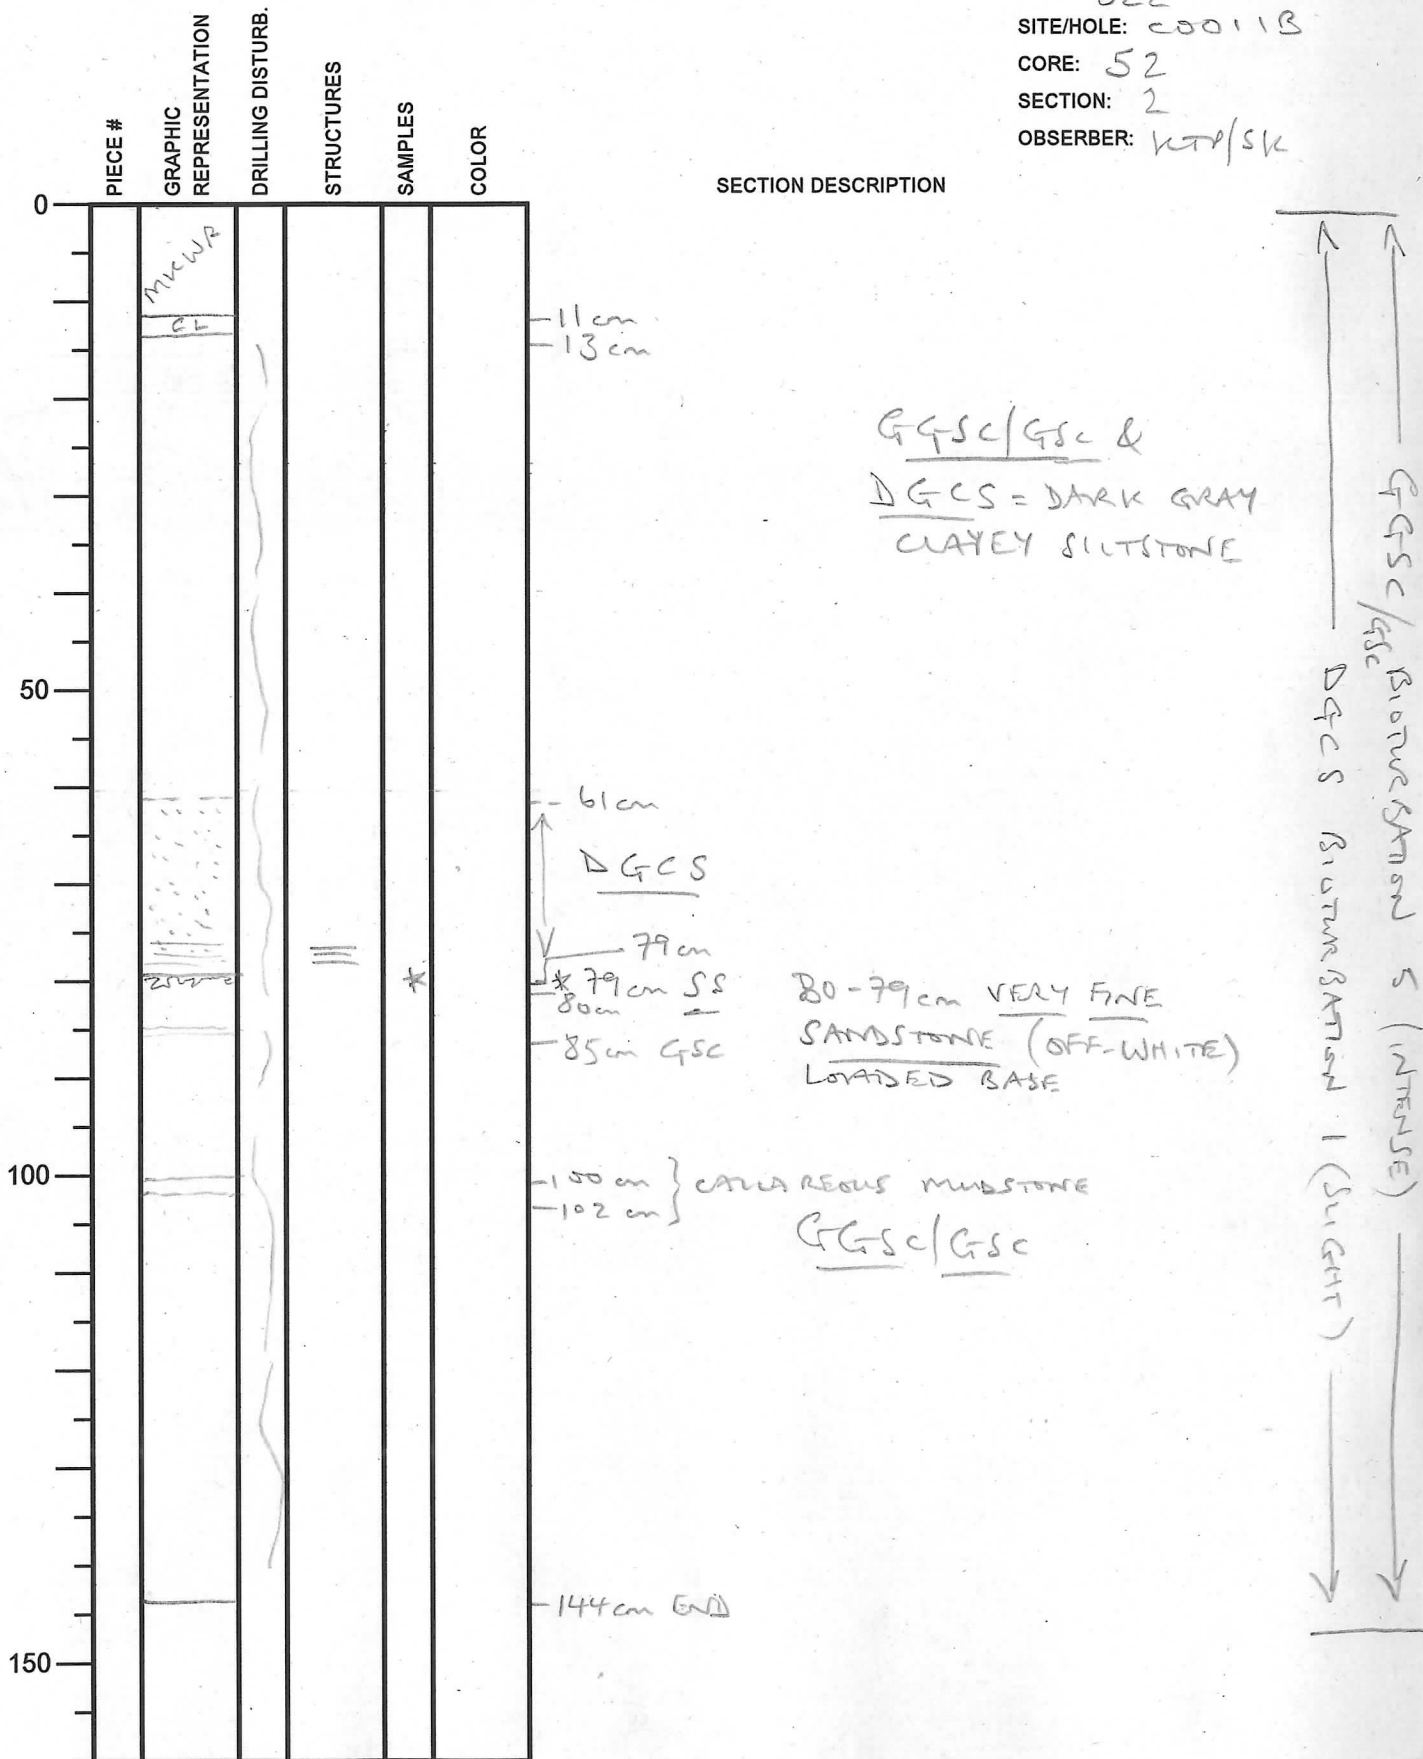 SITE/HOLE: C0011B
CORE: 52
SECTION: 2
OBSERBER: KTP/SK
PIECE #
GRAPHIC REPRESENTATION
DRILLING DISTURB.
STRUCTURES
SAMPLES
COLOR
SECTION DESCRIPTION
0
CL
11 cm
13 cm
GGSC/GSC &
DGCS = DARK GRAY
CLAYEY SILTSTONE
50
61 cm
DGCS
79 cm
* * 79 cm SS
80 cm
80-79 cm VERY FINE
SANDSTONE (OFF-WHITE)
LOADED BASE
85 cm GSC
100
100 cm } CALCAREOUS MUDSTONE
102 cm
GGSC/GSC
144 cm END
150
DGCS BIOTURBATION 1 (SLIGHT)
GGSC/GSC BIOTURBATION 5 (INTENSE)